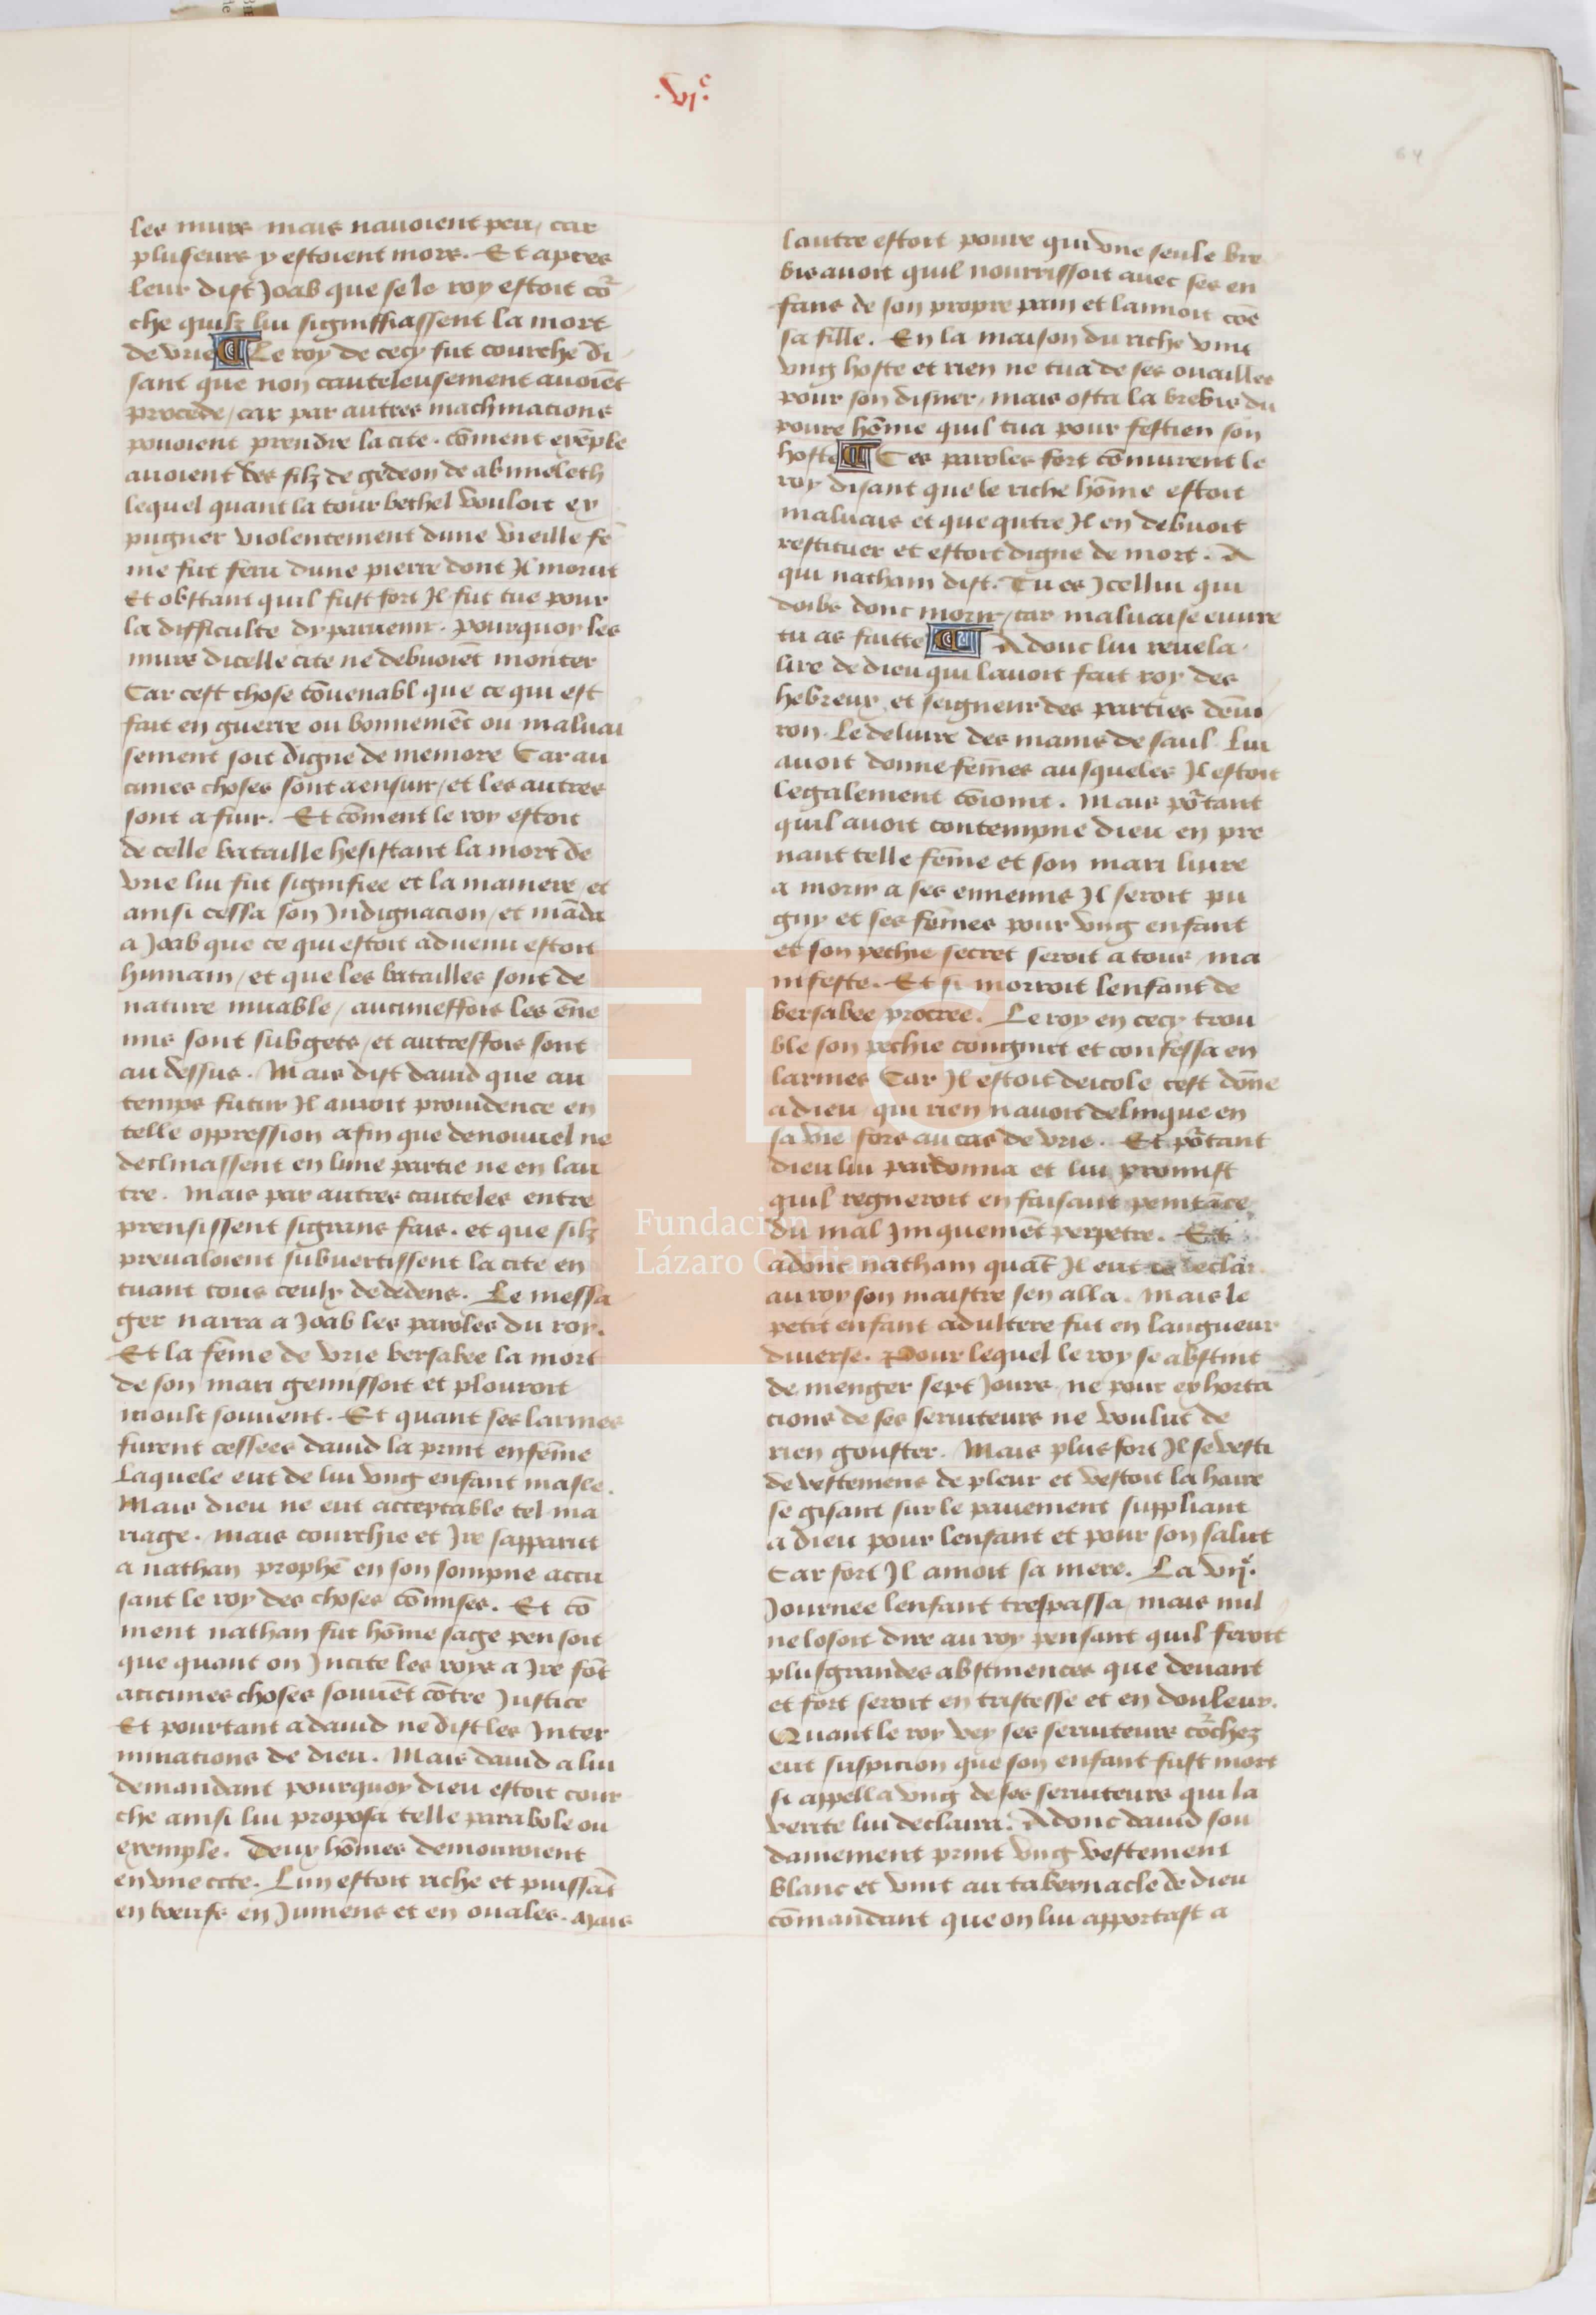 .vjᶜ.
64
les murs mais nauoient peu / car
pluseurs y estoient mors. Et apres
leur dist Joab que se le roy estoit cō
che quilz lui signiffiassent la mort
de vrie Le roy de cecy fut courche di
sant que non cauteleusement auoiēt
procede / car par autres machinacions
pouoient prendre la cite. cōment exēple
auoient des filz de gedeon de abimeleth
lequel quant la tour bethel vouloit ex
pugner violentement dune vieille fē
me fut feru dune pierre dont Jl morut
Et obstant quil fust fort Jl fut tue pour
la difficulte dy paruenir. pourquoy les
murs dicelle cite ne debuoiēt monter
Car cest chose cōuenabl que ce qui est
fait en guerre ou bonnemēt ou maluai
sement soit digne de memore Car au
cunes choses sont a ensuir / et les autres
sont a fuir. Et cōment le roy estoit
de celle bataille hesistant la mort de
vrie lui fut signifiee et la maniere / et
ainsi cessa son Jndignacion / et māda
a Joab que ce qui estoit aduenu estoit
humain / et que les batailles sont de
nature muable / aucuneffois les ēne
mis sont subgets / et autreffois sont
au dessus. Mais dist dauid que au
temps futur Jl auroit prouidence en
telle oppression afin que denouuel ne
declinassent en lune partie ne en lau
tre. Mais par autres cauteles entre
prensissent si grans fais. et que silz
preualoient subuertissent la cite en
tuant tous ceulx dedens. Le messa
ger narra a Joab les paroles du roy.
Et la fēme de vrie bersabee la mort
de son mari gemissoit et plouroit
moult souuent. Et quant ses larmes
furent cessees dauid la print en fēme
Laquele eut de lui vng enfant masle.
Mais dieu ne eut acceptable tel ma
riage. mais courchie et Jre sapparut
a nathan prophē en son sompne accu
sant le roy des choses cōmises. Et cō
ment nathan fut hōme sage pensoit
que quant on Jncite les roys a Jre sōt
aucunes choses souuēt cōtre Justice
Et pourtant a dauid ne dist les Jnter
minations de dieu. Mais dauid a lui
demandant pourquoy dieu estoit cour
che ainsi lui proposa telle parabole ou
exemple. Deux hōmes demouroient
en vne cite. Lun estoit riche et puissāt
en boeufs en Jumens et en ouales. Mais
lautre estoit poure qui vne seule bre
bis auoit quil nourrissoit auec ses en
fans de son propre pain et lamoit cōe
sa fille. En la maison du riche vint
vng hoste et rien ne tua de ses ouailles
pour son disner / mais osta la brebis du
poure hōme quil tua pour festien son
hoste Ces paroles fort cōmurent le
roy disant que le riche hōme estoit
maluais et que qutre Jl en debuoit
restituer et estoit digne de mort. A
qui natham dist. Tu es Jcellui qui
doibs donc morir / car maluaise euure
tu as faitte Adonc lui reuela
lire de dieu qui lauoit fait roy des
hebreux. et seigneur des parties dēui
ron. Le deliure des mains de saul. Lui
auoit donne fēmes ausqueles Jl estoit
legalement cōioint. Mais pōtant
quil auoit contempne dieu en pre
nant telle fēme et son mari liure
a morir a ses ennemis Jl seroit pu
gny et ses fēmes pour vng enfant
et son pechie secret seroit a tous ma
nifeste. Et si morroit lenfant de
bersabee procree. Le roy en cecy trou
ble son pechie congnut et confessa en
larmes Car Jl estoit deicole cest dōne
a dieu / qui rien nauoit delinque en
sa vie fors au cas de vrie. Et pōtant
dieu lui pardonna et lui promist
quil regneroit en faisant penitāce
du mal Jniquemēt perpetre. Et
adonc natham quāt Jl eut declar
au roy son maistre sen alla. Mais le
petit enfant adultere fut en langueur
diuerse. Pour lequel le roy se abstint
de menger sept Jours ne pour exhorta
cions de ses seruiteurs ne voulut de
rien gouster. Mais plus fort Jl se vesti
de vestemens de pleur et vestoit la haire
se gisant sur le pauement suppliant
a dieu pour lenfant et pour son salut
Car fort Jl amoit sa mere. La vijᵉ.
Journee lenfant trespassa / mais nul
ne losoit dire au roy pensant quil feroit
plus grandes abstinences que deuant
et fort seroit en tristesse et en douleur.
Quant le roy vey ses seruiteurs cōchez
eut suspicion que son enfant fust mort
si appella vng de ses seruiteurs qui la
verite lui declaira. Adonc dauid sou
dainement print vng vestement
blanc et vint au tabernacle de dieu
cōmandant que on lui apportast a
Fundación
Lázaro Galdiano
FLG